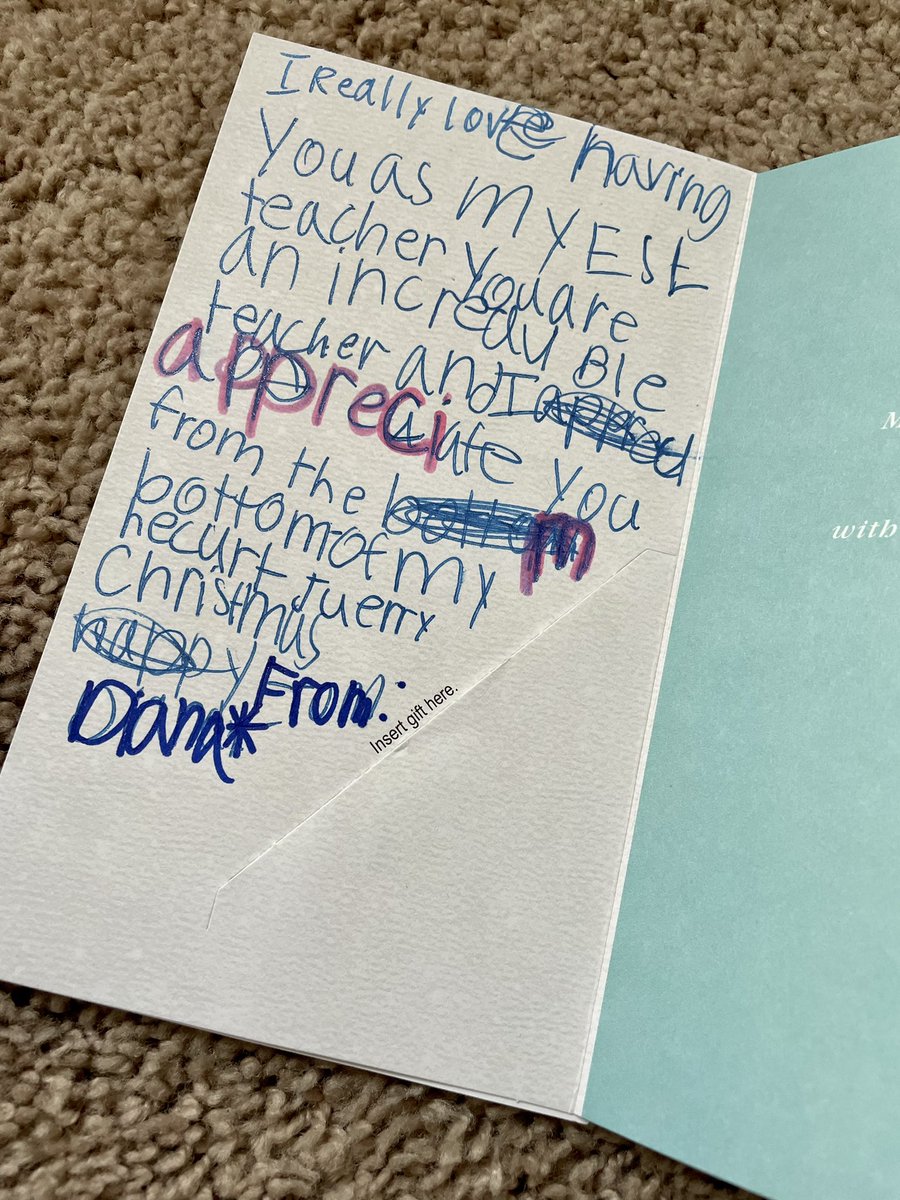 I Really love having
You as my ESL
teacher you are
an incredu Ble
teacher and I appred
appreciate you
from the bottom
bottom of my m
hecurt Juerry
Christmus
happy From:
Diana*
Insert gift here.
M
with